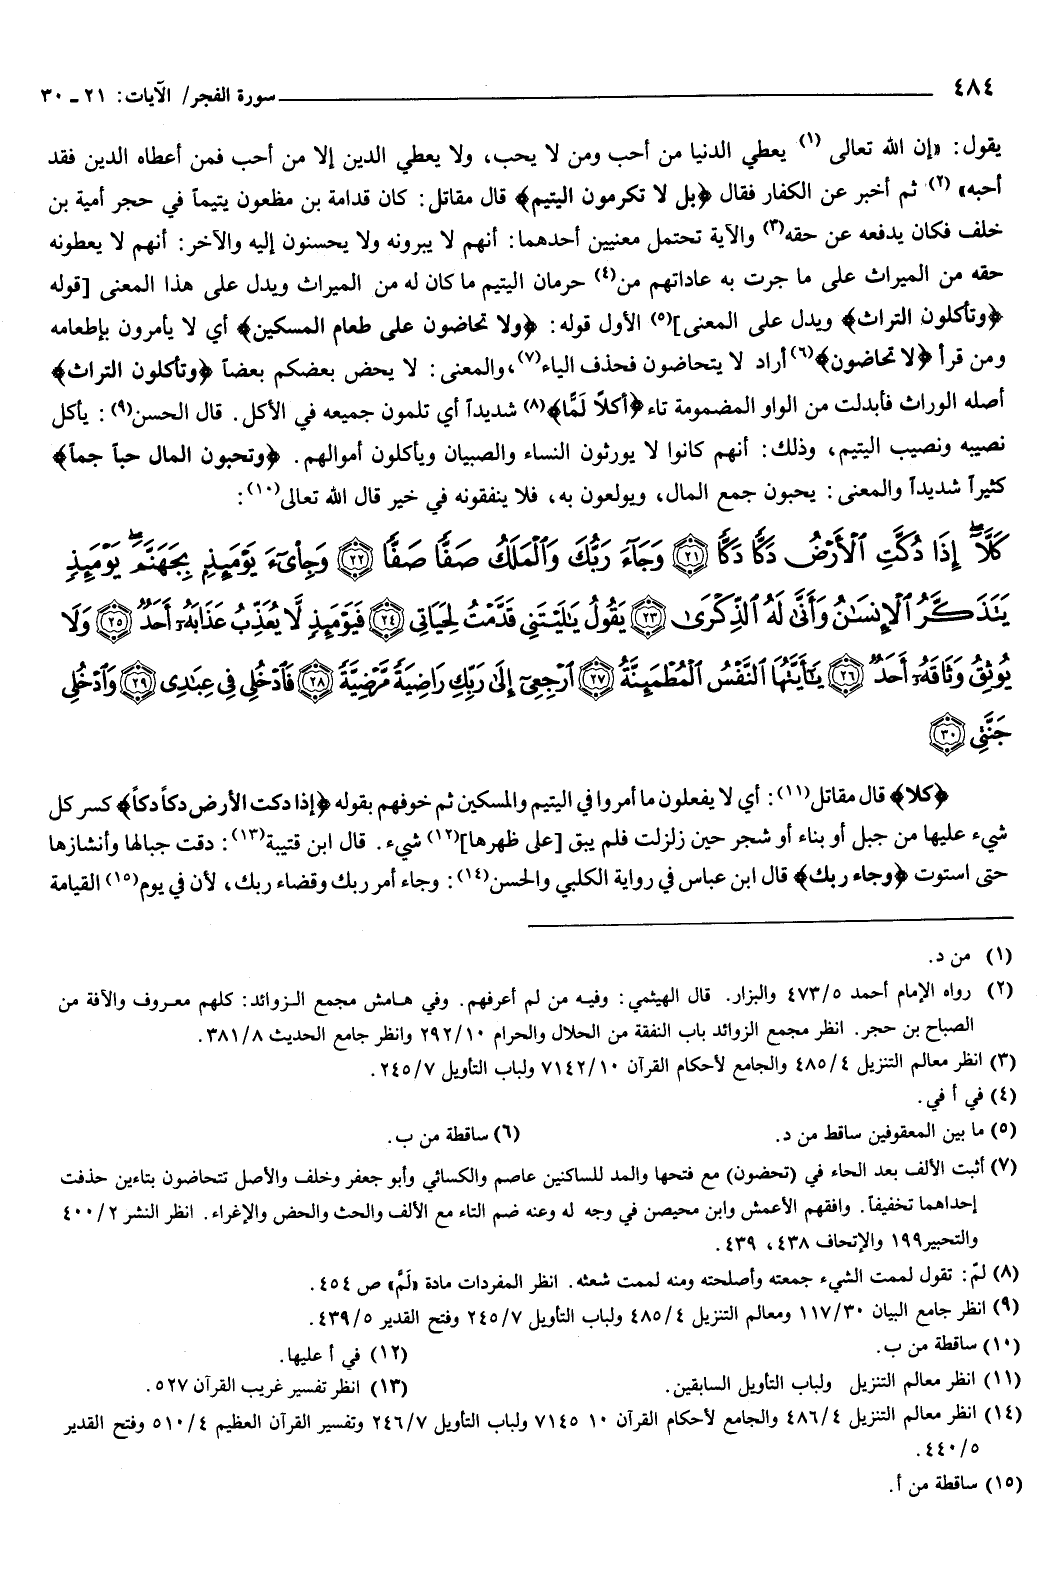 ٤٨٤ سورة الفجر/ الآيات: ٢١ ـ ٣٠
يقول: «إن الله تعالى (١) يعطي الدنيا من أحب ومن لا يحب، ولا يعطي الدين إلا من أحب فمن أعطاه الدين فقد
أحبه» (٢) ثم أخبر عن الكفار فقال ﴿بل لا تكرمون اليتيم﴾ قال مقاتل: كان قدامة بن مظعون يتيماً في حجر أمية بن
خلف فكان يدفعه عن حقه(٣) والآية تحتمل معنيين أحدهما: أنهم لا يبرونه ولا يحسنون إليه والآخر: أنهم لا يعطونه
حقه من الميراث على ما جرت به عاداتهم من(٤) حرمان اليتيم ما كان له من الميراث ويدل على هذا المعنى [قوله
﴿وتأكلون التراث﴾ ويدل على المعنى](٥) الأول قوله: ﴿ولا تحاضون على طعام المسكين﴾ أي لا يأمرون بإطعامه
ومن قرأ ﴿لا تحاضون﴾(٦) أراد لا يتحاضون فحذف الياء(٧)، والمعنى: لا يحض بعضكم بعضاً ﴿وتأكلون التراث﴾
أصله الوراث فأبدلت من الواو المضمومة تاء ﴿أكلاً لَمًّا﴾(٨) شديداً أي تلمون جميعه في الأكل. قال الحسن(٩): يأكل
نصيبه ونصيب اليتيم، وذلك: أنهم كانوا لا يورثون النساء والصبيان ويأكلون أموالهم. ﴿وتحبون المال حباً جماً﴾
كثيراً شديداً والمعنى: يحبون جمع المال، ويولعون به، فلا ينفقونه في خير قال الله تعالى(١٠):
كَلَّآۖ إِذَا دُكَّتِ ٱلْأَرْضُ دَكًّا دَكًّا ۝٢١ وَجَآءَ رَبُّكَ وَٱلْمَلَكُ صَفًّا صَفًّا ۝٢٢ وَجِا۟ىٓءَ يَوْمَئِذٍۭ بِجَهَنَّمَۚ يَوْمَئِذٍ
يَتَذَكَّرُ ٱلْإِنسَٰنُ وَأَنَّىٰ لَهُ ٱلذِّكْرَىٰ ۝٢٣ يَقُولُ يَٰلَيْتَنِى قَدَّمْتُ لِحَيَاتِى ۝٢٤ فَيَوْمَئِذٍ لَّا يُعَذِّبُ عَذَابَهُۥٓ أَحَدٌ ۝٢٥ وَلَا
يُوثِقُ وَثَاقَهُۥٓ أَحَدٌ ۝٢٦ يَٰٓأَيَّتُهَا ٱلنَّفْسُ ٱلْمُطْمَئِنَّةُ ۝٢٧ ٱرْجِعِىٓ إِلَىٰ رَبِّكِ رَاضِيَةً مَّرْضِيَّةً ۝٢٨ فَٱدْخُلِى فِى عِبَٰدِى ۝٢٩ وَٱدْخُلِى
جَنَّتِى ۝٣٠
﴿كلا﴾ قال مقاتل(١١): أي لا يفعلون ما أمروا في اليتيم والمسكين ثم خوفهم بقوله ﴿إذا دكت الأرض دكاً دكاً﴾ كسر كل
شيء عليها من جبل أو بناء أو شجر حين زلزلت فلم يبق [على ظهرها](١٢) شيء. قال ابن قتيبة(١٣): دقت جبالها وأنشازها
حتى استوت ﴿وجاء ربك﴾ قال ابن عباس في رواية الكلبي والحسن(١٤): وجاء أمر ربك وقضاء ربك، لأن في يوم(١٥) القيامة
(١) من د.
(٢) رواه الإمام أحمد ٤٧٣/٥ والبزار. قال الهيثمي: وفيه من لم أعرفهم. وفي هامش مجمع الزوائد: كلهم معروف والآفة من
الصباح بن حجر. انظر مجمع الزوائد باب النفقة من الحلال والحرام ٢٩٢/١٠ وانظر جامع الحديث ٣٨١/٨.
(٣) انظر معالم التنزيل ٤٨٥/٤ والجامع لأحكام القرآن ٧١٤٢/١٠ ولباب التأويل ٢٤٥/٧.
(٤) في أ في.
(٥) ما بين المعقوفين ساقط من د. (٦) ساقطة من ب.
(٧) أثبت الألف بعد الحاء في (تحضون) مع فتحها والمد للساكنين عاصم والكسائي وأبو جعفر وخلف والأصل تتحاضون بتاءين حذفت
إحداهما تخفيفاً. وافقهم الأعمش وابن محيصن في وجه له وعنه ضم التاء مع الألف والحث والحض والإغراء. انظر النشر ٤٠٠/٢
والتحبير١٩٩ والإتحاف ٤٣٨، ٤٣٩.
(٨) لمّ: تقول لممت الشيء جمعته وأصلحته ومنه لممت شعثه. انظر المفردات مادة «لَمَّ» ص ٤٥٤.
(٩) انظر جامع البيان ١١٧/٣٠ ومعالم التنزيل ٤٨٥/٤ ولباب التأويل ٢٤٥/٧ وفتح القدير ٤٣٩/٥.
(١٠) ساقطة من ب. (١٢) في أ عليها.
(١١) انظر معالم التنزيل ولباب التأويل السابقين. (١٣) انظر تفسير غريب القرآن ٥٢٧.
(١٤) انظر معالم التنزيل ٤٨٦/٤ والجامع لأحكام القرآن ١٠ ٧١٤٥ ولباب التأويل ٢٤٦/٧ وتفسير القرآن العظيم ٥١٠/٤ وفتح القدير
٤٤٠/٥.
(١٥) ساقطة من أ.